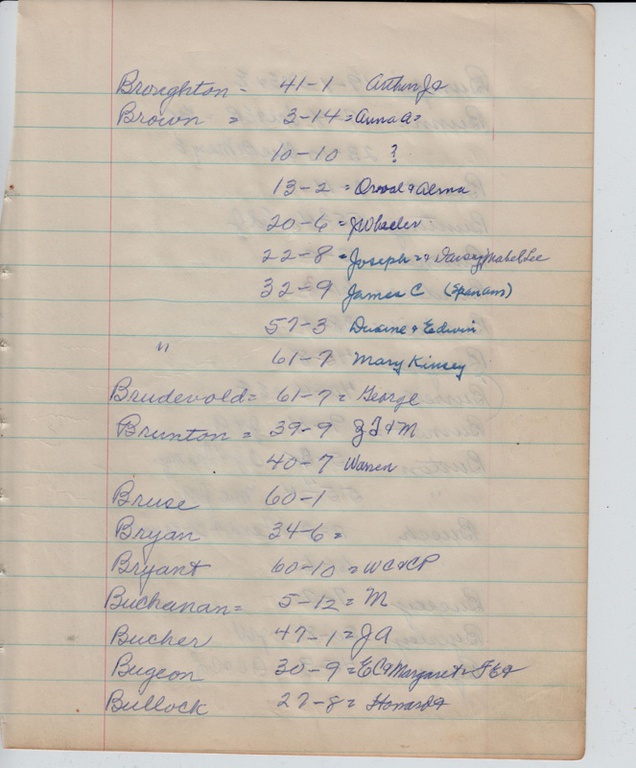 Broughton - 41-1 Arthur Jr
Brown = 3-14 = Anna A =
10-10 ?
13-2 = Orval & Alma
20-6 = J Wheeler
22-8 = Joseph = Daisey, Mabel Lee
32-9 James C (Span am)
57-3 Duane & Edwin
" 61-7 Mary Kinsey
Brudevold = 61-7 = George
Brunton = 39-9 & M
40-7 Warren
Bruse 60-1
Bryan 34-6 =
Bryant 60-10 = WC & CP
Buchanan = 5-12 = M
Bucher 47-1 = JA
Bugeon 30-9 = EC & Margaret &
Bullock 27-8 = Howard &